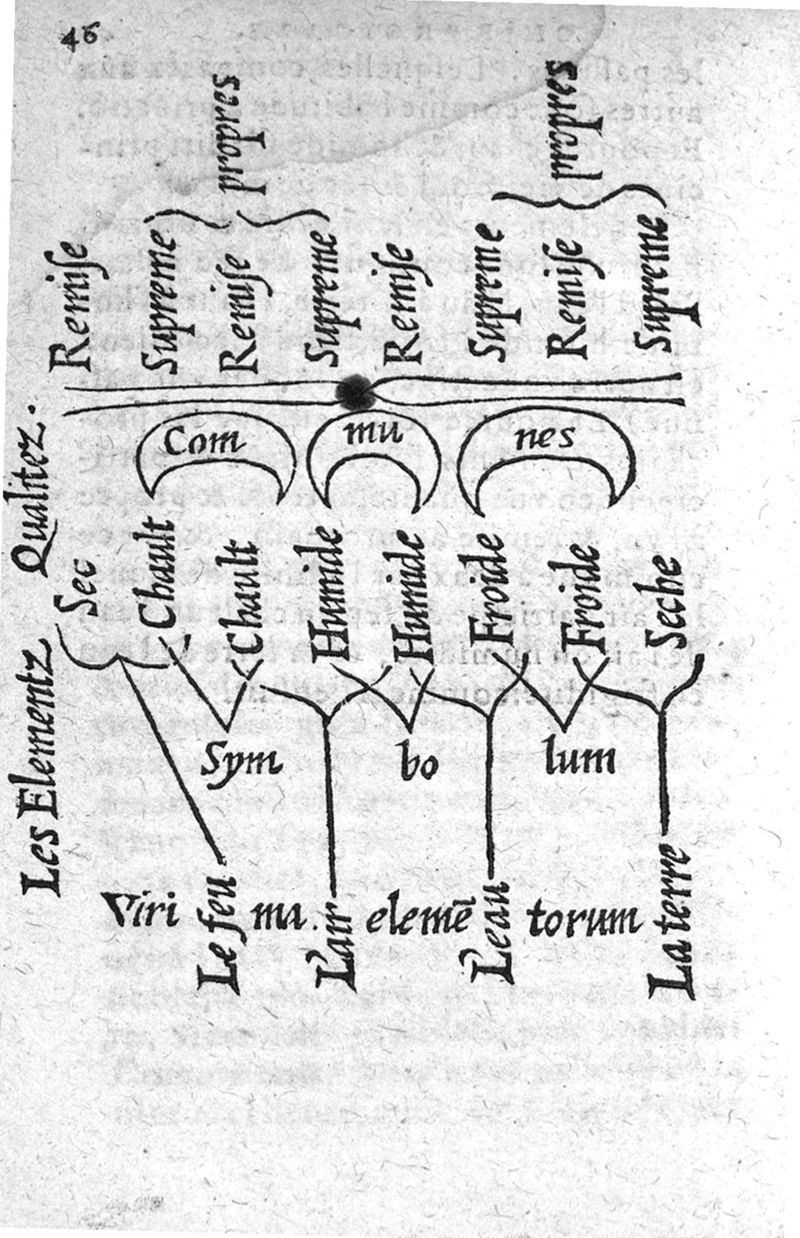 46
Les Elementz Qualitez.
Sec Remiſe
Chault Supreme
Chault Remiſe
Humide Supreme
Humide Remiſe
Froide Supreme
Froide Remiſe
Seche Supreme
propres
propres
Com mu nes
Sym bo lum
Viri ma. elemē torum
Le feu
L'air
L'eau
La terre